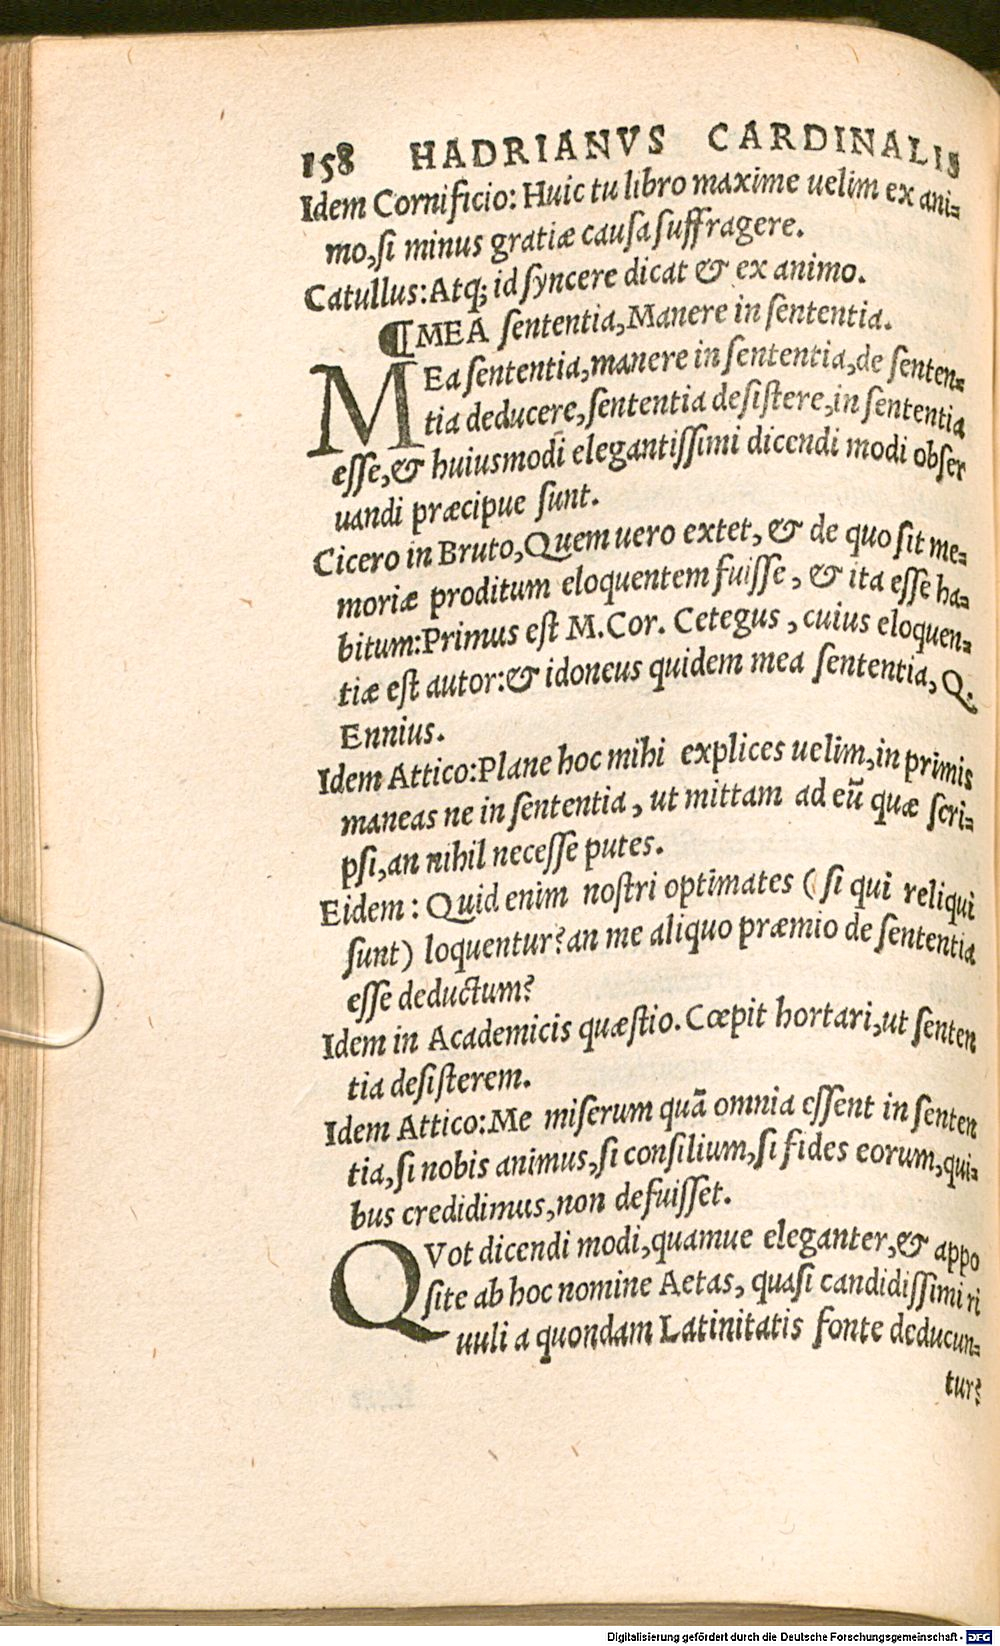 158 HADRIANVS CARDINALIS
Idem Cornificio: Huic tu libro maxime uelim ex ani=
mo, ſi minus gratiæ cauſa ſuffragere.
Catullus: Atq; id ſyncere dicat & ex animo.
¶ MEA ſententia, Manere in ſententia.
MEa ſententia, manere in ſententia, de ſenten=
tia deducere, ſententia deſiſtere, in ſententia
eſſe, & huiusmodi elegantiſſimi dicendi modi obſer
uandi præcipue ſunt.
Cicero in Bruto, Quem uero extet, & de quo ſit me=
moriæ proditum eloquentem fuiſſe, & ita eſſe ha=
bitum: Primus eſt M. Cor. Cetegus, cuius eloquen=
tiæ eſt autor: & idoneus quidem mea ſententia, Q.
Ennius.
Idem Attico: Plane hoc mihi explices uelim, in primis
maneas ne in ſententia, ut mittam ad eū quæ ſcri=
pſi, an nihil neceſſe putes.
Eidem: Quid enim noſtri optimates (ſi qui reliqui
ſunt) loquentur? an me aliquo præmio de ſententia
eſſe deductum?
Idem in Academicis quæſtio. Cœpit hortari, ut ſenten
tia deſiſterem.
Idem Attico: Me miſerum quā omnia eſſent in ſenten
tia, ſi nobis animus, ſi conſilium, ſi fides eorum, qui=
bus credidimus, non defuiſſet.
QVot dicendi modi, quamue eleganter, & appo
ſite ab hoc nomine Aetas, quaſi candidiſſimi ri
uuli a quondam Latinitatis fonte deducun=
tur?
Digitalisierung gefördert durch die Deutsche Forschungsgemeinschaft - DFG